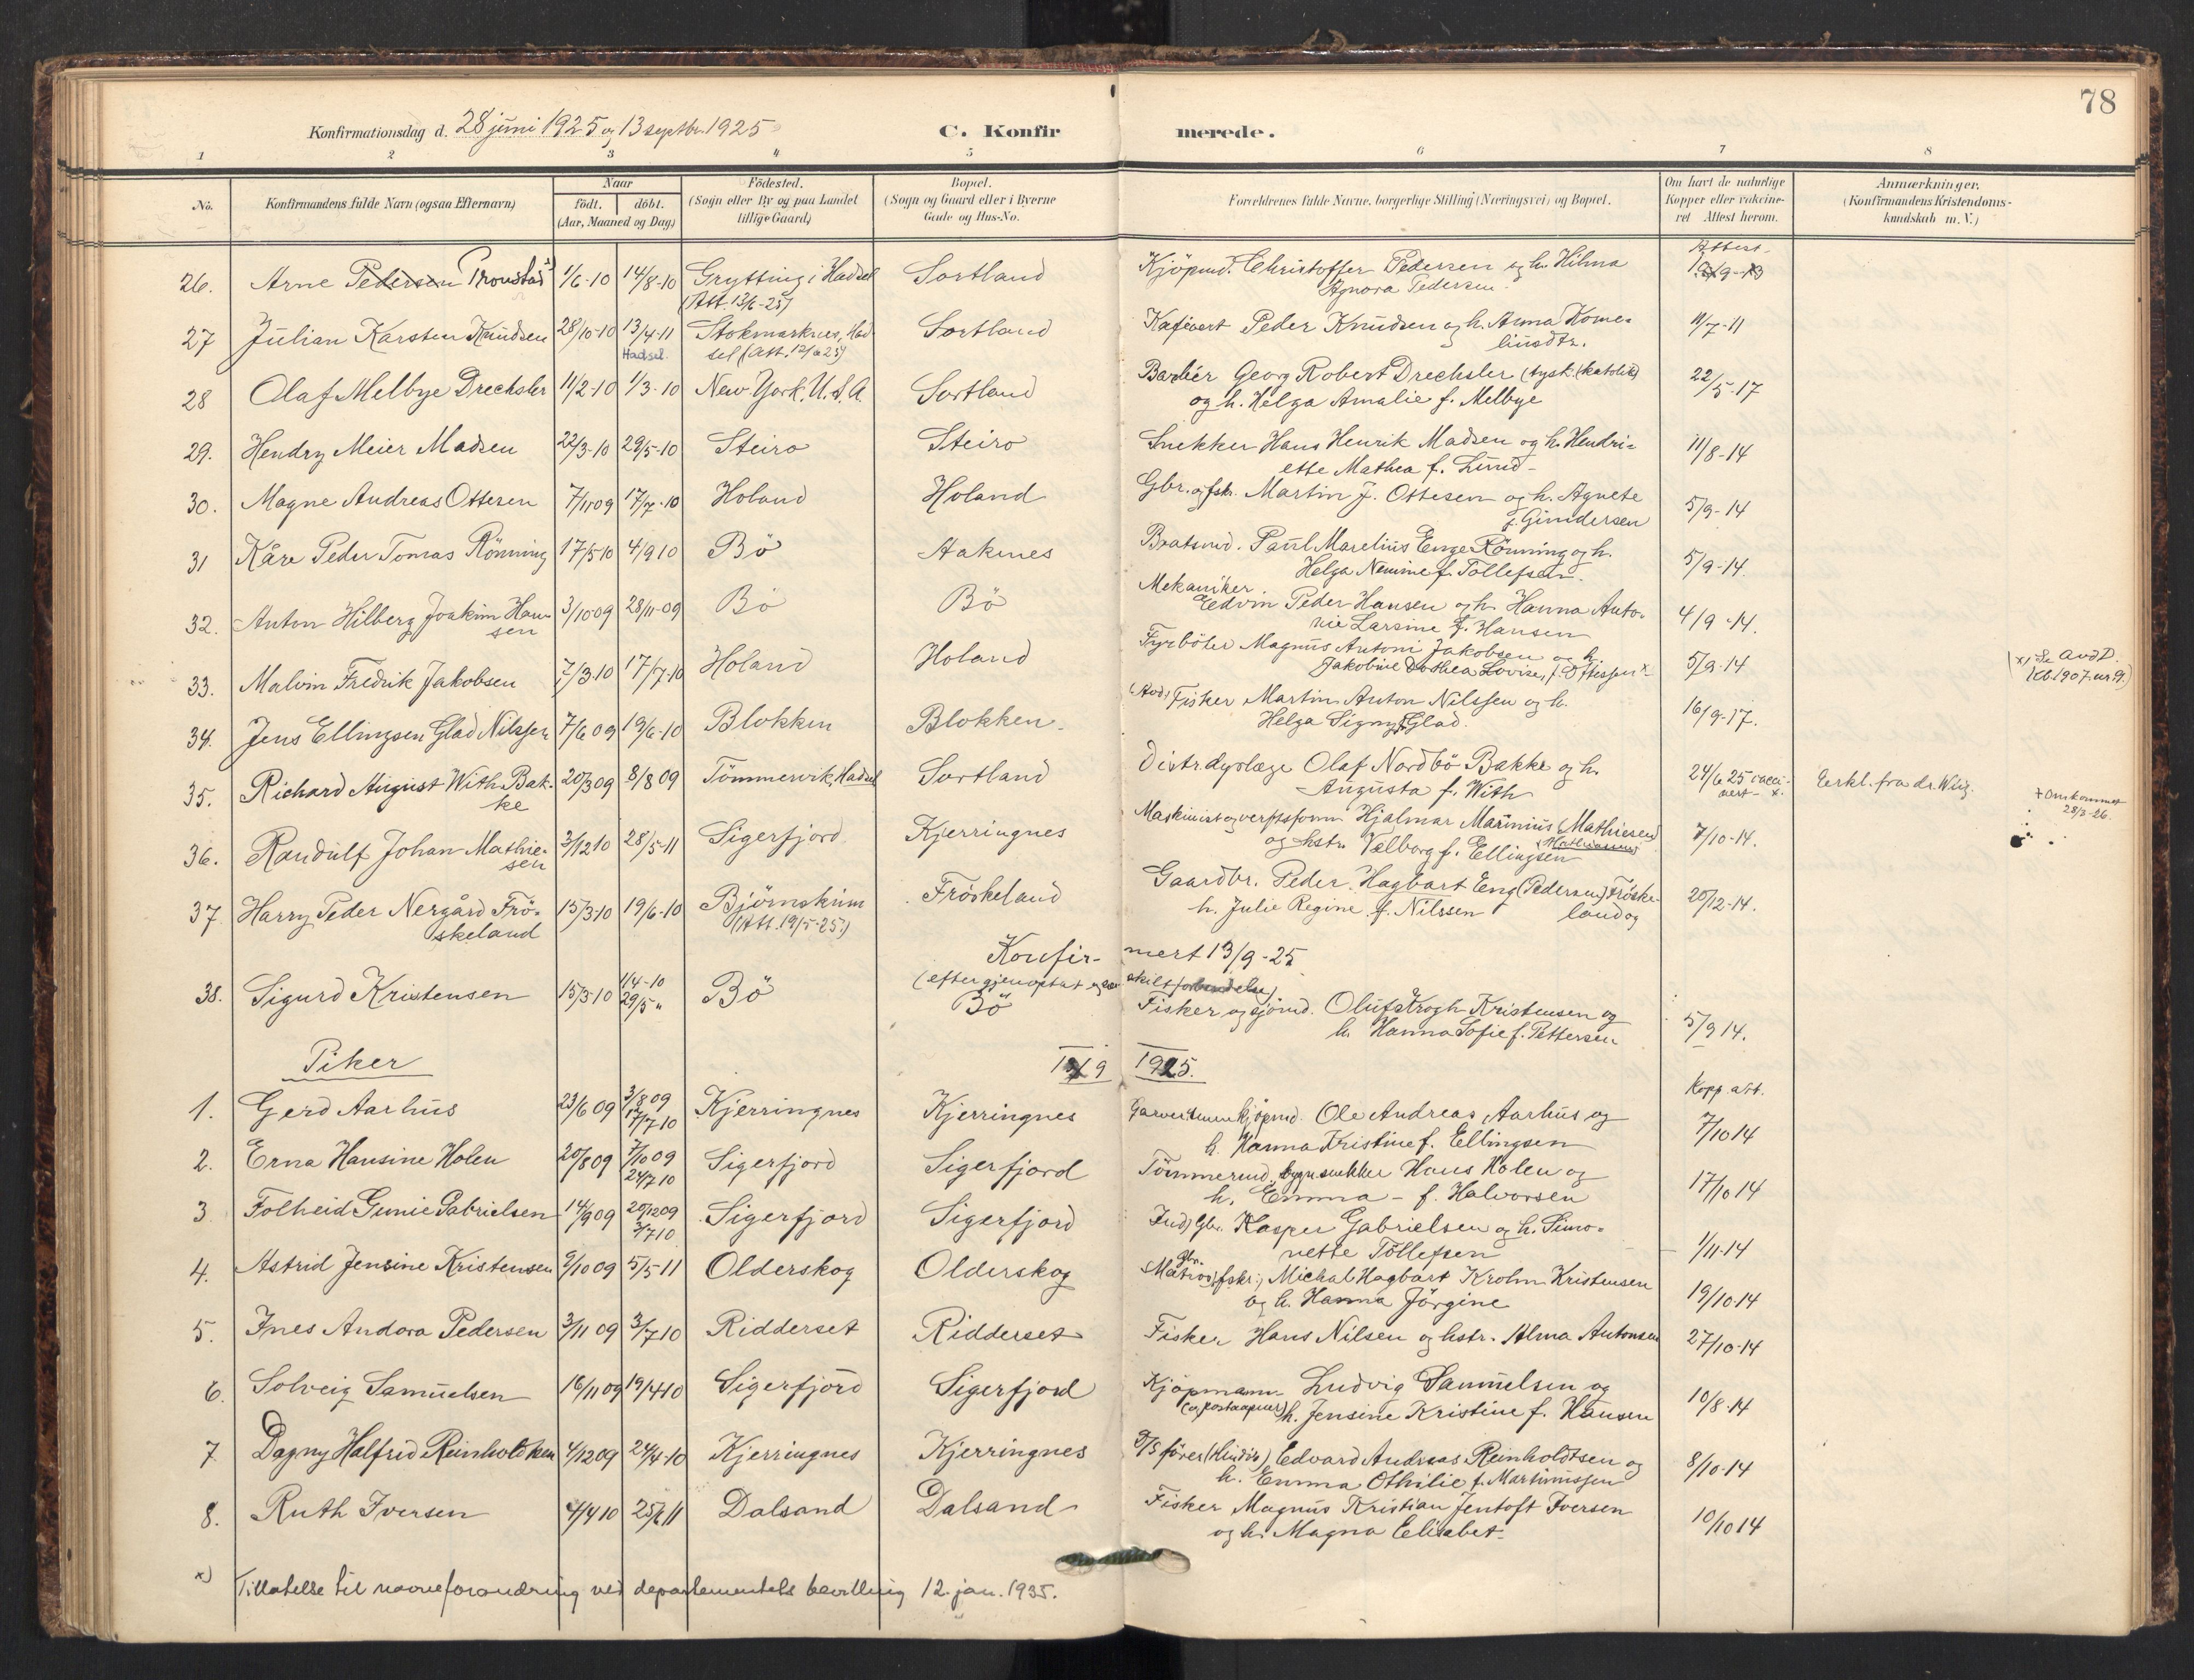 78
Konfirmationsdag d. 28 juni 1925 og 13 septbr. 1925
C. Konfir merede.
1 2 3 4 5 6 7 8
No.
Konfirmandens fulde Navn (ogsaa Efternavn)
Naar
födt. döbt.
(Aar, Maaned og Dag)
Födested.
(Sogn eller By og paa Landet
tillige Gaard)
Bopæl.
(Sogn og Gaard eller i Byerne
Gade og Hus-No.
Forældrenes fulde Navne, borgerlige Stilling (Næringsvei) og Bopæl.
Om havt de naturlige
Kopper eller vakcine-
ret Attest herom.
Anmærkninger.
(Konfirmandens Kristendoms-
kundskab m. V.)
Attest
26. Arne Pedersen Pronstad x) 1/6-10 14/8-10 Grytting i Hadsel Sortland Kjöpmd. Christoffer Pedersen og h. Hilma
(Att. 13/6-25) Agnora Pedersen
27 Julian Karsten Knudsen 28/10-10 13/4-11 Stokmarknes, Had Sortland Kafévert Peder Knudsen og h. Anna Korne- 11/7-11
Hadsel. sel (att. 12/6 25) liusdtr.
28 Olaf Melbye Drechsler 11/2-10 1/3-10 New York. U.S.A. Sortland Barbér Georg Robert Drechsler (tysk. (katolik) 22/5-17
og h. Helga Amalie f. Melbye
29. Hendry Meier Madsen 22/3-10 29/5-10 Steiro Steiro Snekker Hans Henrik Madsen og h. Hendri- 11/8-14
ette Mathea f. Lund
30. Magne Andreas Ottesen 7/11 09 17/7-10 Holand Holand Gbr. og fskr. Martin J. Ottesen og h. Agnete 5/9-14
f. Gundersen
31 Kåre Peder Tomas Rönning 17/5 10 4/9 10 Bö Aaknes Baatsmd. Paul Marelius Enge Rönning og h. 5/9-14.
Helga Nemine f. Tollefsen.
32. Anton Hilberg Joakim Han- 3/10 09 28/11-09 Bö Bö Mekaniker Edvin Peder Hansen og h. Hanna Anto- 4/9-14.
sen nie Larsine f. Hansen
33. Malvin Fredrik Jakobsen 7/3-10 17/7-10 Holand Holand Fyrböter Magnus Antoni Jakobsen og h. 5/9-14
Jakobine Dorthea Lovise, f. Ottessen x
(x) Se avd D.
Kb. 1907. nr 9.)
34. Jens Ellingsen Glad Nilssen 7/6 09 19/6-10 Blokken Blokken Fisker Martin Anton Nilssen og h. 16/9-17.
Helga Signy f. Glad.
35. Richard August With Bak- 20/3 09 8/8 09 Tömmervik, Hadsel Sortland Distr. dyrlæge Olaf Nordbö Bakke og h. 24/6 25 vacci- Eerkl. fra dr. Wiig.
ke Augusta f. With nert - x.
+ omkommet
28/3-26.
36. Randulf Johan Mathie- 3/12 10 28/5-11 Sigerfjord Kjerringnes Maskinist og verftsform Hjalmar Marinius (Mathiesen) 7/10-14.
sen og hstr. Valborg f. Ellingsen
37. Harry Peder Nergård Frö- 15/3-10 19/6-10 Björnskinn Fröskeland Gaardbr. Peder Hagbart Eng (Pedersen) Fröske- 20/12-14.
skeland (Att. 19/5-25.) h. Julie Regine f. Nilssen land og
Konfir- mert 13/9-25
(efter gjenoptat og skilt forberedelse)
38. Sigurd Kristensen 15/3 10 1/4-10 29/5 " Bö Bö Fisker og sjömd. Oluf Krogh Kristensen og 5/9 14.
h. Hanna Sofie f. Pettersen
Piker 19 1925.
Kopp att.
1. Gerd Aarhus 23/6 09 3/8 09 17/7 10 Kjerringnes Kjerringnes kjöpmd. Ole Andreas Aarhus og 7/10 14
h. Hanna Kristine f. Ellingsen
2. Erna Hansine Holen 20/8 09 7/10 09 24/7 10 Sigerfjord Sigerfjord Tömmermd. bygn. snekker Hans Holen og 17/10 14
h. Emma - f. Halvorsen
3 Folheid Gunie Gabrielsen 14/9 09 20/12 09 3/7 10 Sigerfjord Sigerfjord Ind) Gbr. Kasper Gabrielsen og h. Simo- 1/11-14
nette Tollefsen
4. Astrid Jensine Kristensen 9/10 09 5/5 11 Olderskog Olderskog Gbr. (Matros) fskr., Michal Hagbart Krohn Kristensen 19/10-14
og h. Hanna Jörgine
5. Ines Andora Pedersen 3/11 09 3/7 10 Ridderset Ridderset Fisker Hans Nilsen og hstr. Alma Antonsen 27/10-14
6. Solveig Samuelsen 16/11 09 19/4 10 Sigerfjord Sigerfjord Kjöpmann Ludvig Samuelsen og 10/8-14
(og postaapner) h. Jensine Kristine f. Hansen
7. Dagny Halfrid Reinholdtsen 4/12 09 24/4-10 Kjerringnes Kjerringnes D/S förer Edvard Andreas Reinholdtsen og 8/10-14
h. Emma Othilie f. Martinussen
8. Ruth Iversen 4/4 10 25/6 11 Dalsand Dalsand Fisker Magnus Kristian Jentoft Iversen 10/10 14
og h. Magna Elisabet
x) Tillatelse til navneforandring ved departementets bevilling 12. jan. 1935.